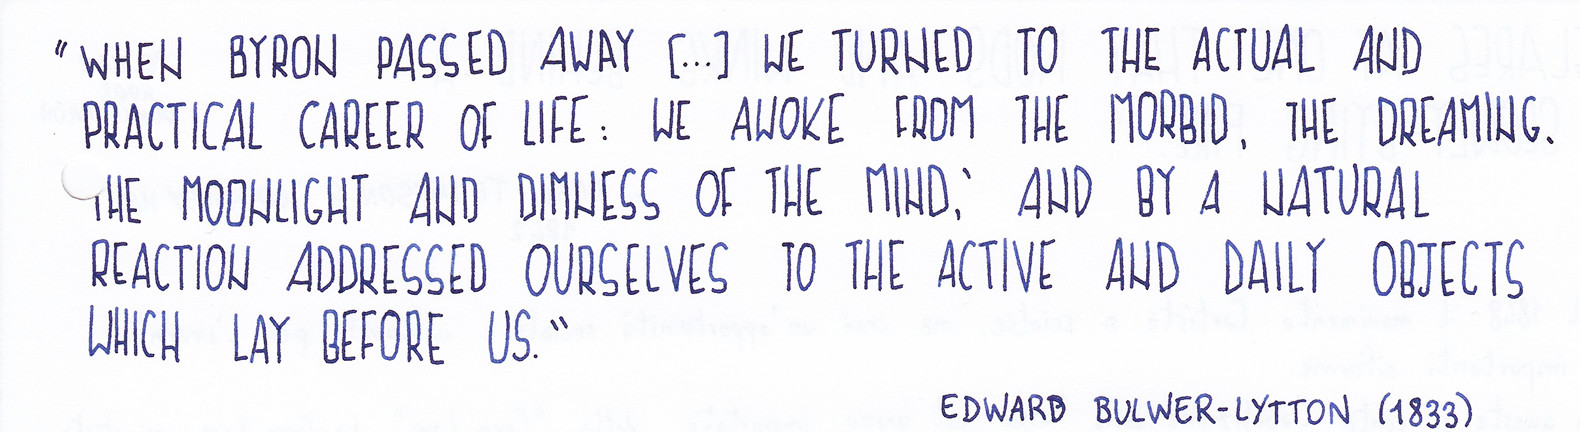 "WHEN BYRON PASSED AWAY [...] WE TURNED TO THE ACTUAL AND
PRACTICAL CAREER OF LIFE: WE AWOKE FROM THE MORBID, THE DREAMING,
THE MOONLIGHT AND DIMNESS OF THE MIND; AND BY A NATURAL
REACTION ADDRESSED OURSELVES TO THE ACTIVE AND DAILY OBJECTS
WHICH LAY BEFORE US."
EDWARD BULWER-LYTTON (1833)